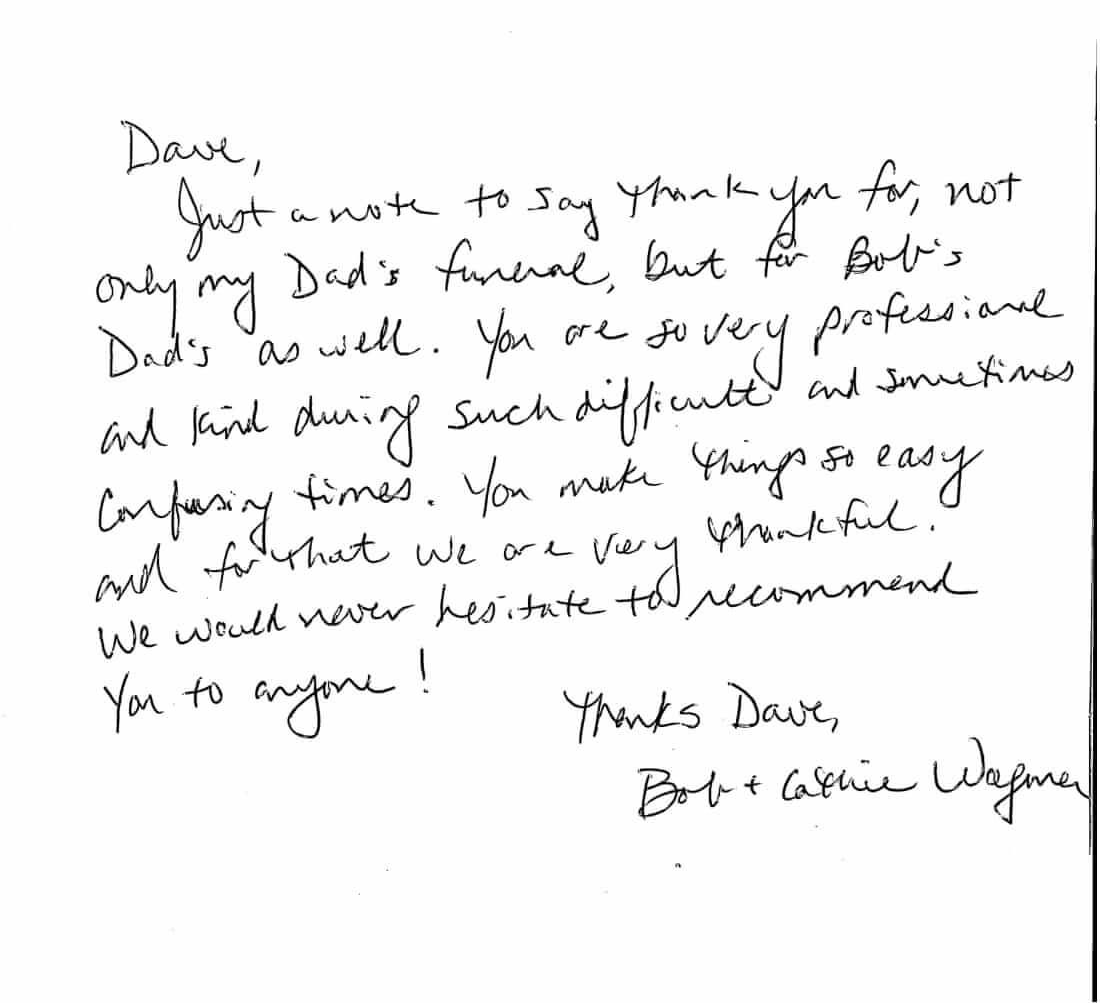 Dave,
Just a note to say thank you for, not
only my Dad's funeral, but for Bob's
Dad's as well. You are so very professional
and kind during such difficult and sometimes
confusing times. You make things so easy
and for that we are very thankful.
We would never hesitate to recommend
You to anyone!
Thanks Dave,
Bob + Cathie Wagner